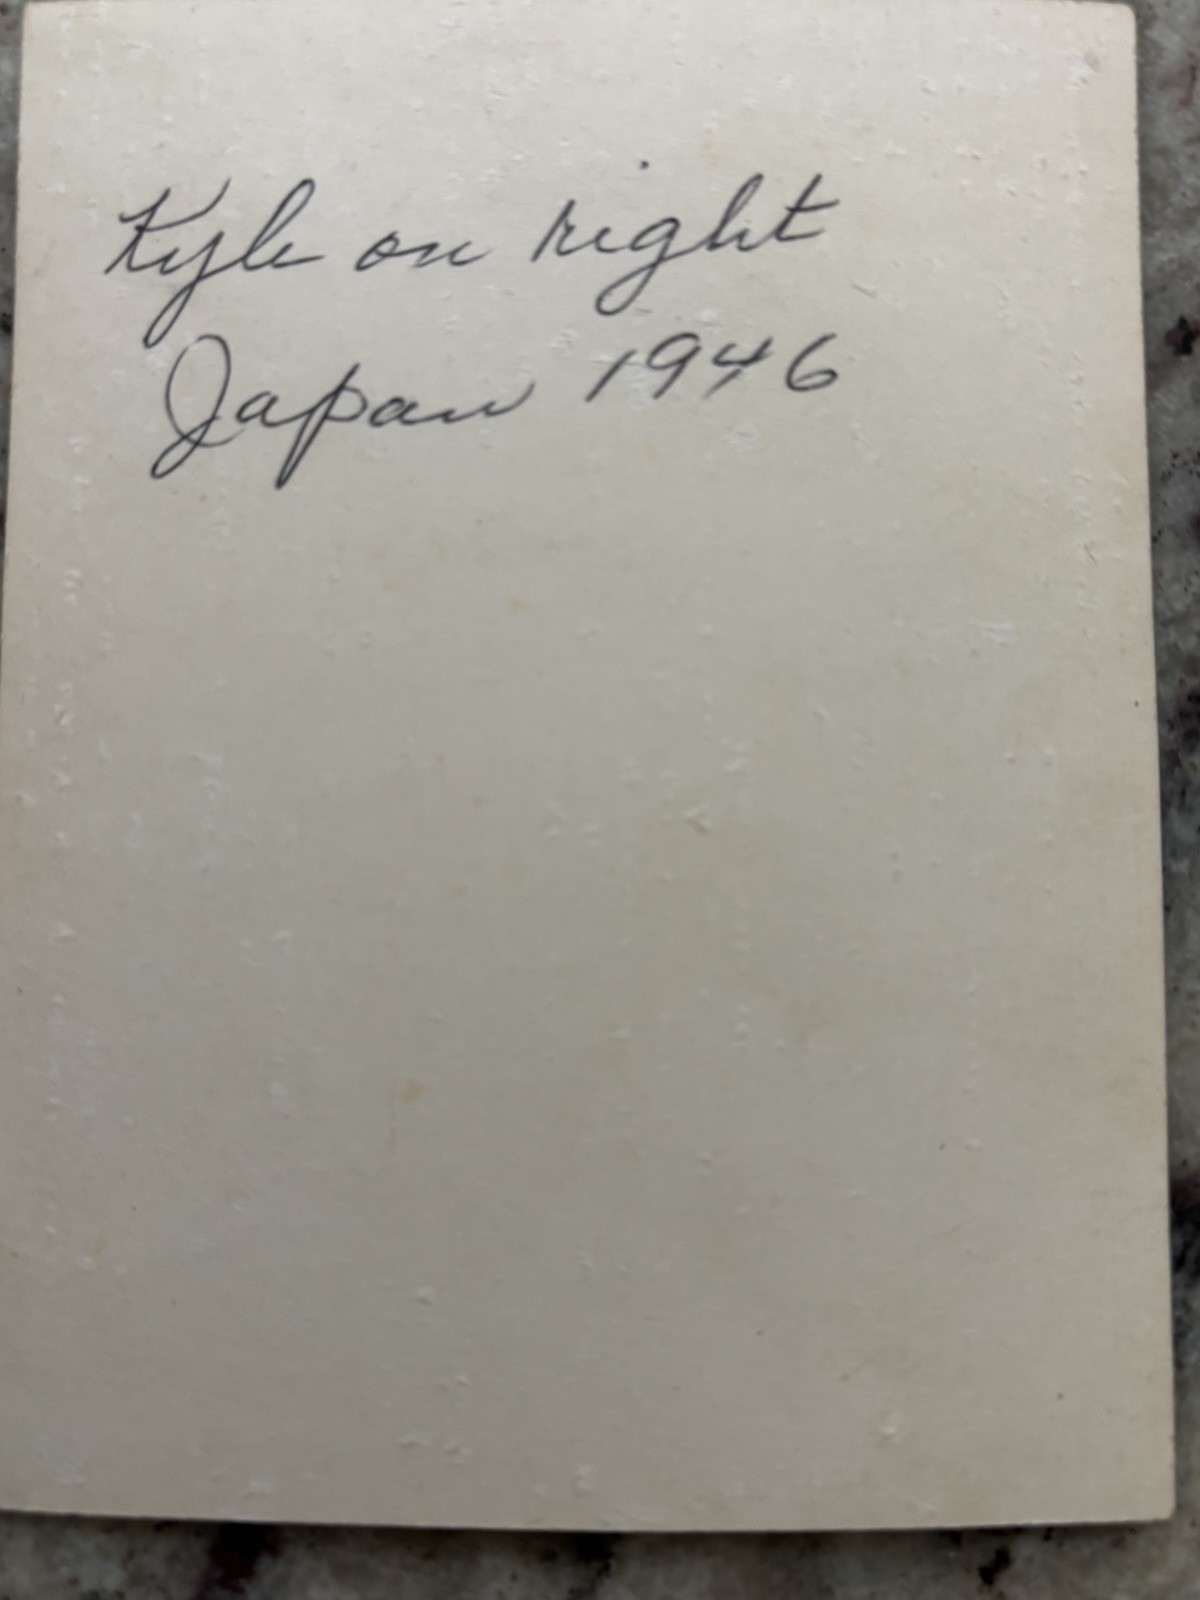 Kyle on right
Japan 1946